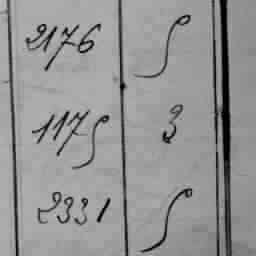 2176 5
1175 3
2331 5